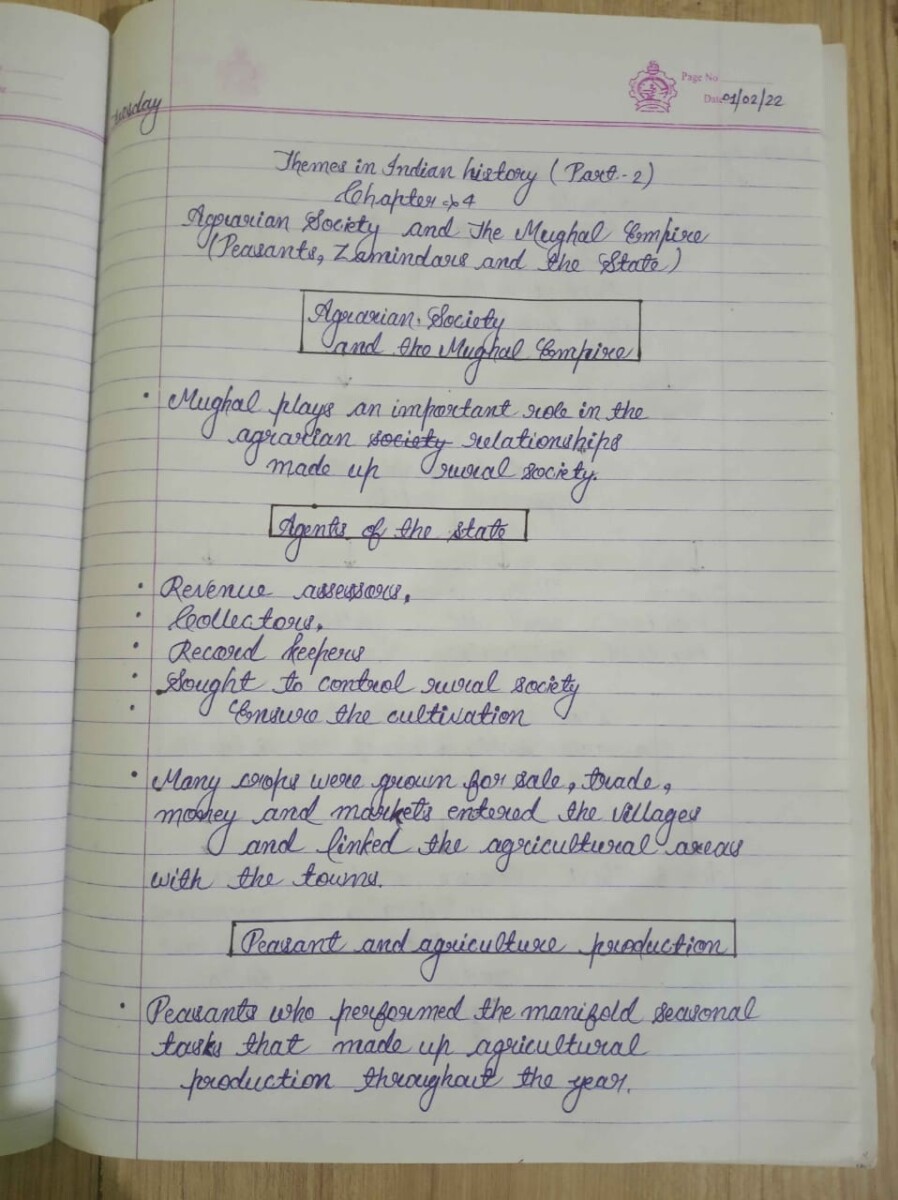 Page No
Date 01/02/22
Tuesday
Themes in Indian history (Part-2)
Chapter => 4
Agrarian Society and The Mughal Empire
(Peasants, Zamindars and the State)
Agrarian Society
and the Mughal Empire
• Mughal plays an important role in the
agrarian society relationships
made up rural society.
Agents of the state
• Revenue assessors,
• Collectors,
• Record keepers
• Sought to control rural society
• Ensure the cultivation
• Many crops were grown for sale, trade,
money and markets entered the villages
and linked the agricultural areas
with the towns.
Peasant and agriculture production
• Peasants who performed the manifold seasonal
tasks that made up agricultural
production throughout the year.